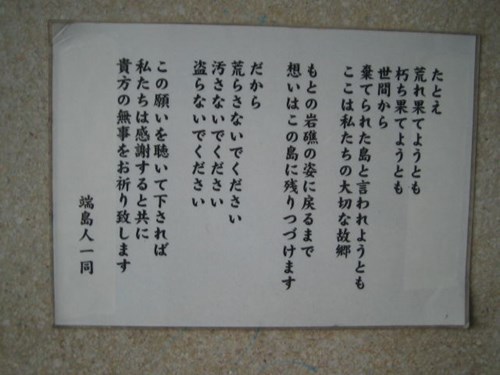 たとえ
荒れ果てようとも
朽ち果てようとも
世間から
棄てられた島と言われようとも
ここは私たちの大切な故郷
もとの岩礁の姿に戻るまで
想いはこの島に残りつづけます
だから
荒らさないでください
汚さないでください
盗らないでください
この願いを聴いて下されば
私たちは感謝すると共に
貴方の無事をお祈り致します
端島人一同